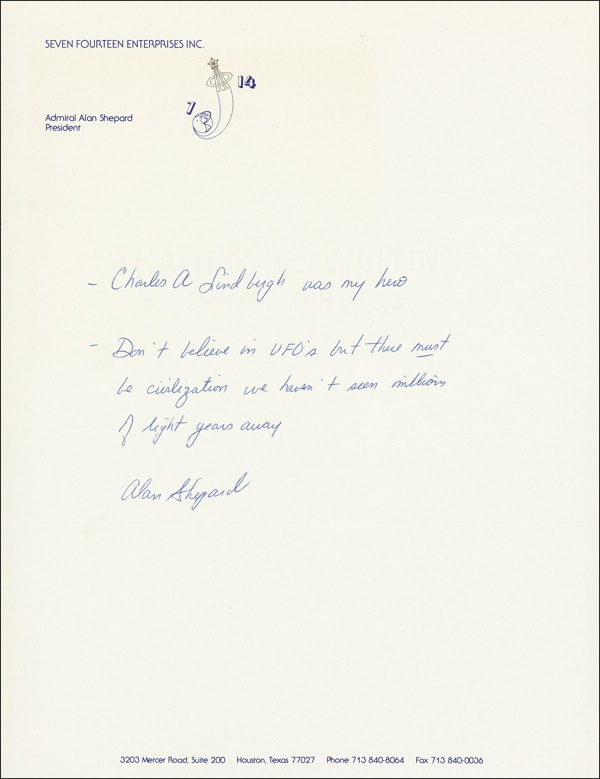 SEVEN FOURTEEN ENTERPRISES INC.
14
7
Admiral Alan Shepard
President
- Charles A Lindbergh was my hero
- Don't believe in UFO's but there must
be civilization we haven't seen millions
of light years away
Alan Shepard
3203 Mercer Road, Suite 200 Houston, Texas 77027 Phone 713 840-8064 Fax 713 840-0036